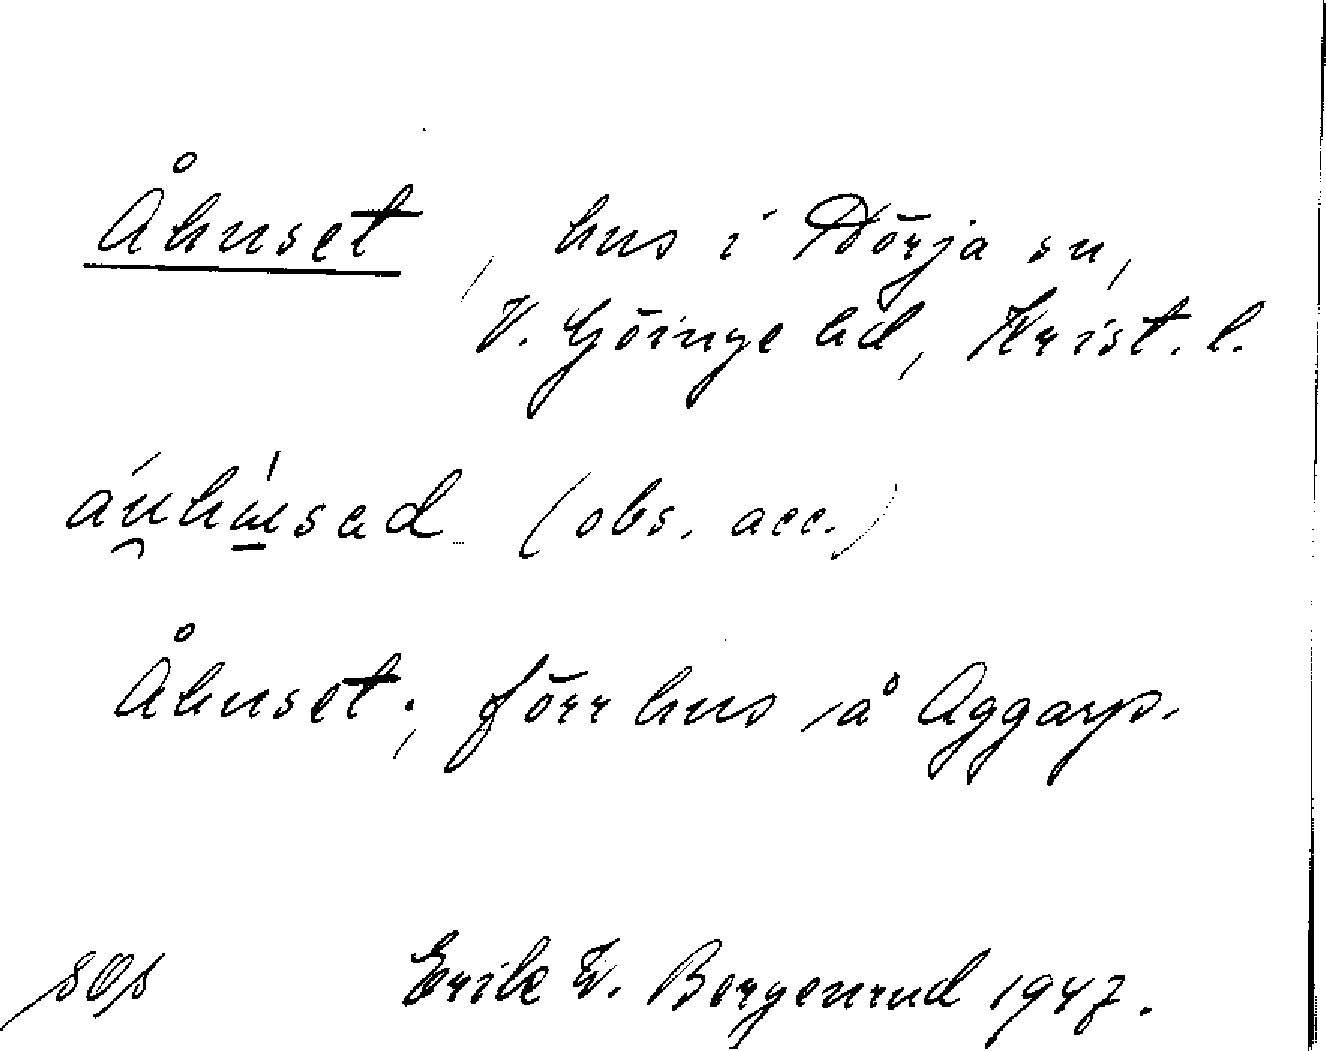 Åhuset, hus i Dörja sn,
V. Göinge hd, Krist. l.
(obs. acc.)
Åhuset; förr hus på Aggarp.
sos Erik W. Bergenrud 1947.